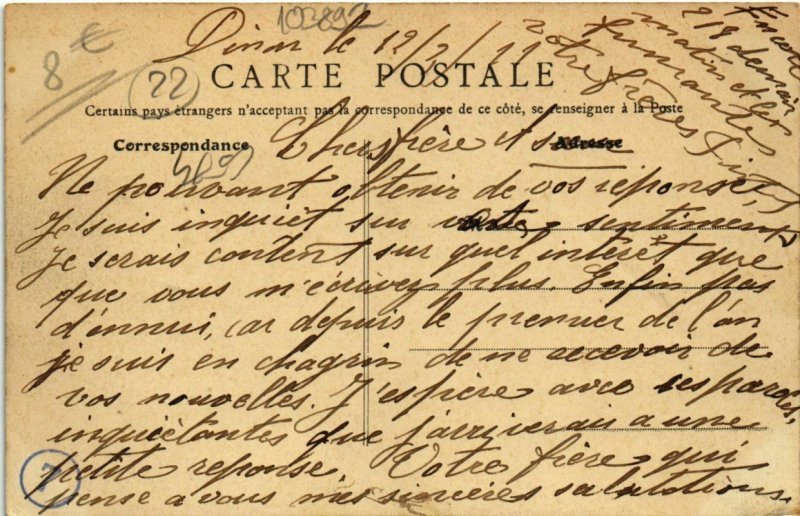 103892
8 €
22
Dinan le 12/2/11
CARTE POSTALE
Certains pays étrangers n'acceptant pas la correspondance de ce côté, se renseigner à la Poste
Correspondance
Adresse
Chers frère et
Ne pouvant obtenir de vos réponse,
Je suis inquièt sur sentiments
Je serais content sur quel intérèt que
que vous m'écrivez plus. Enfin pas
d'ennui, car depuis le premier de l'an
je suis en chagrin de ne recevoir de
vos nouvelles. J'espière avec ses paroles,
inquiétantes que j'arriverai a une
petite reponse. Votre frère qui
pense a vous mes sincères salutations
Encore
218 demain
matin et
votre frère